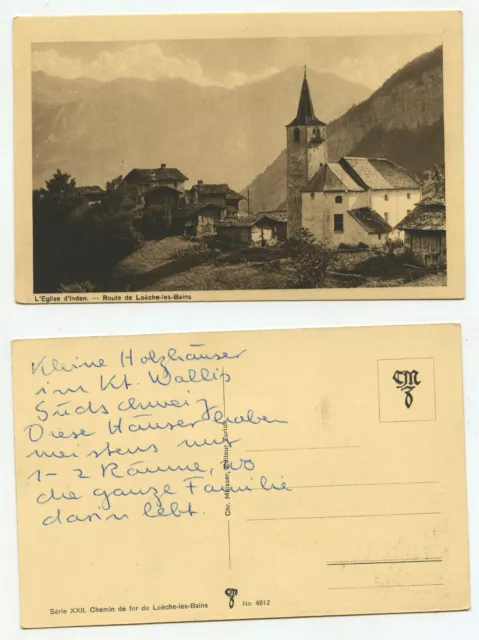 L'Eglise d'Inden. — Route de Loèche-les-Bains
Kleine Holzhäuser
im Kt. Wallis
Südschweiz
Diese Häuser haben
meistens nur
1-2 Räume, wo
die ganze Familie
darin lebt.
Chr. Meisser, Editeur, Zurich
CM
Série XXII. Chemin de fer de Loèche-les-Bains
No 4812